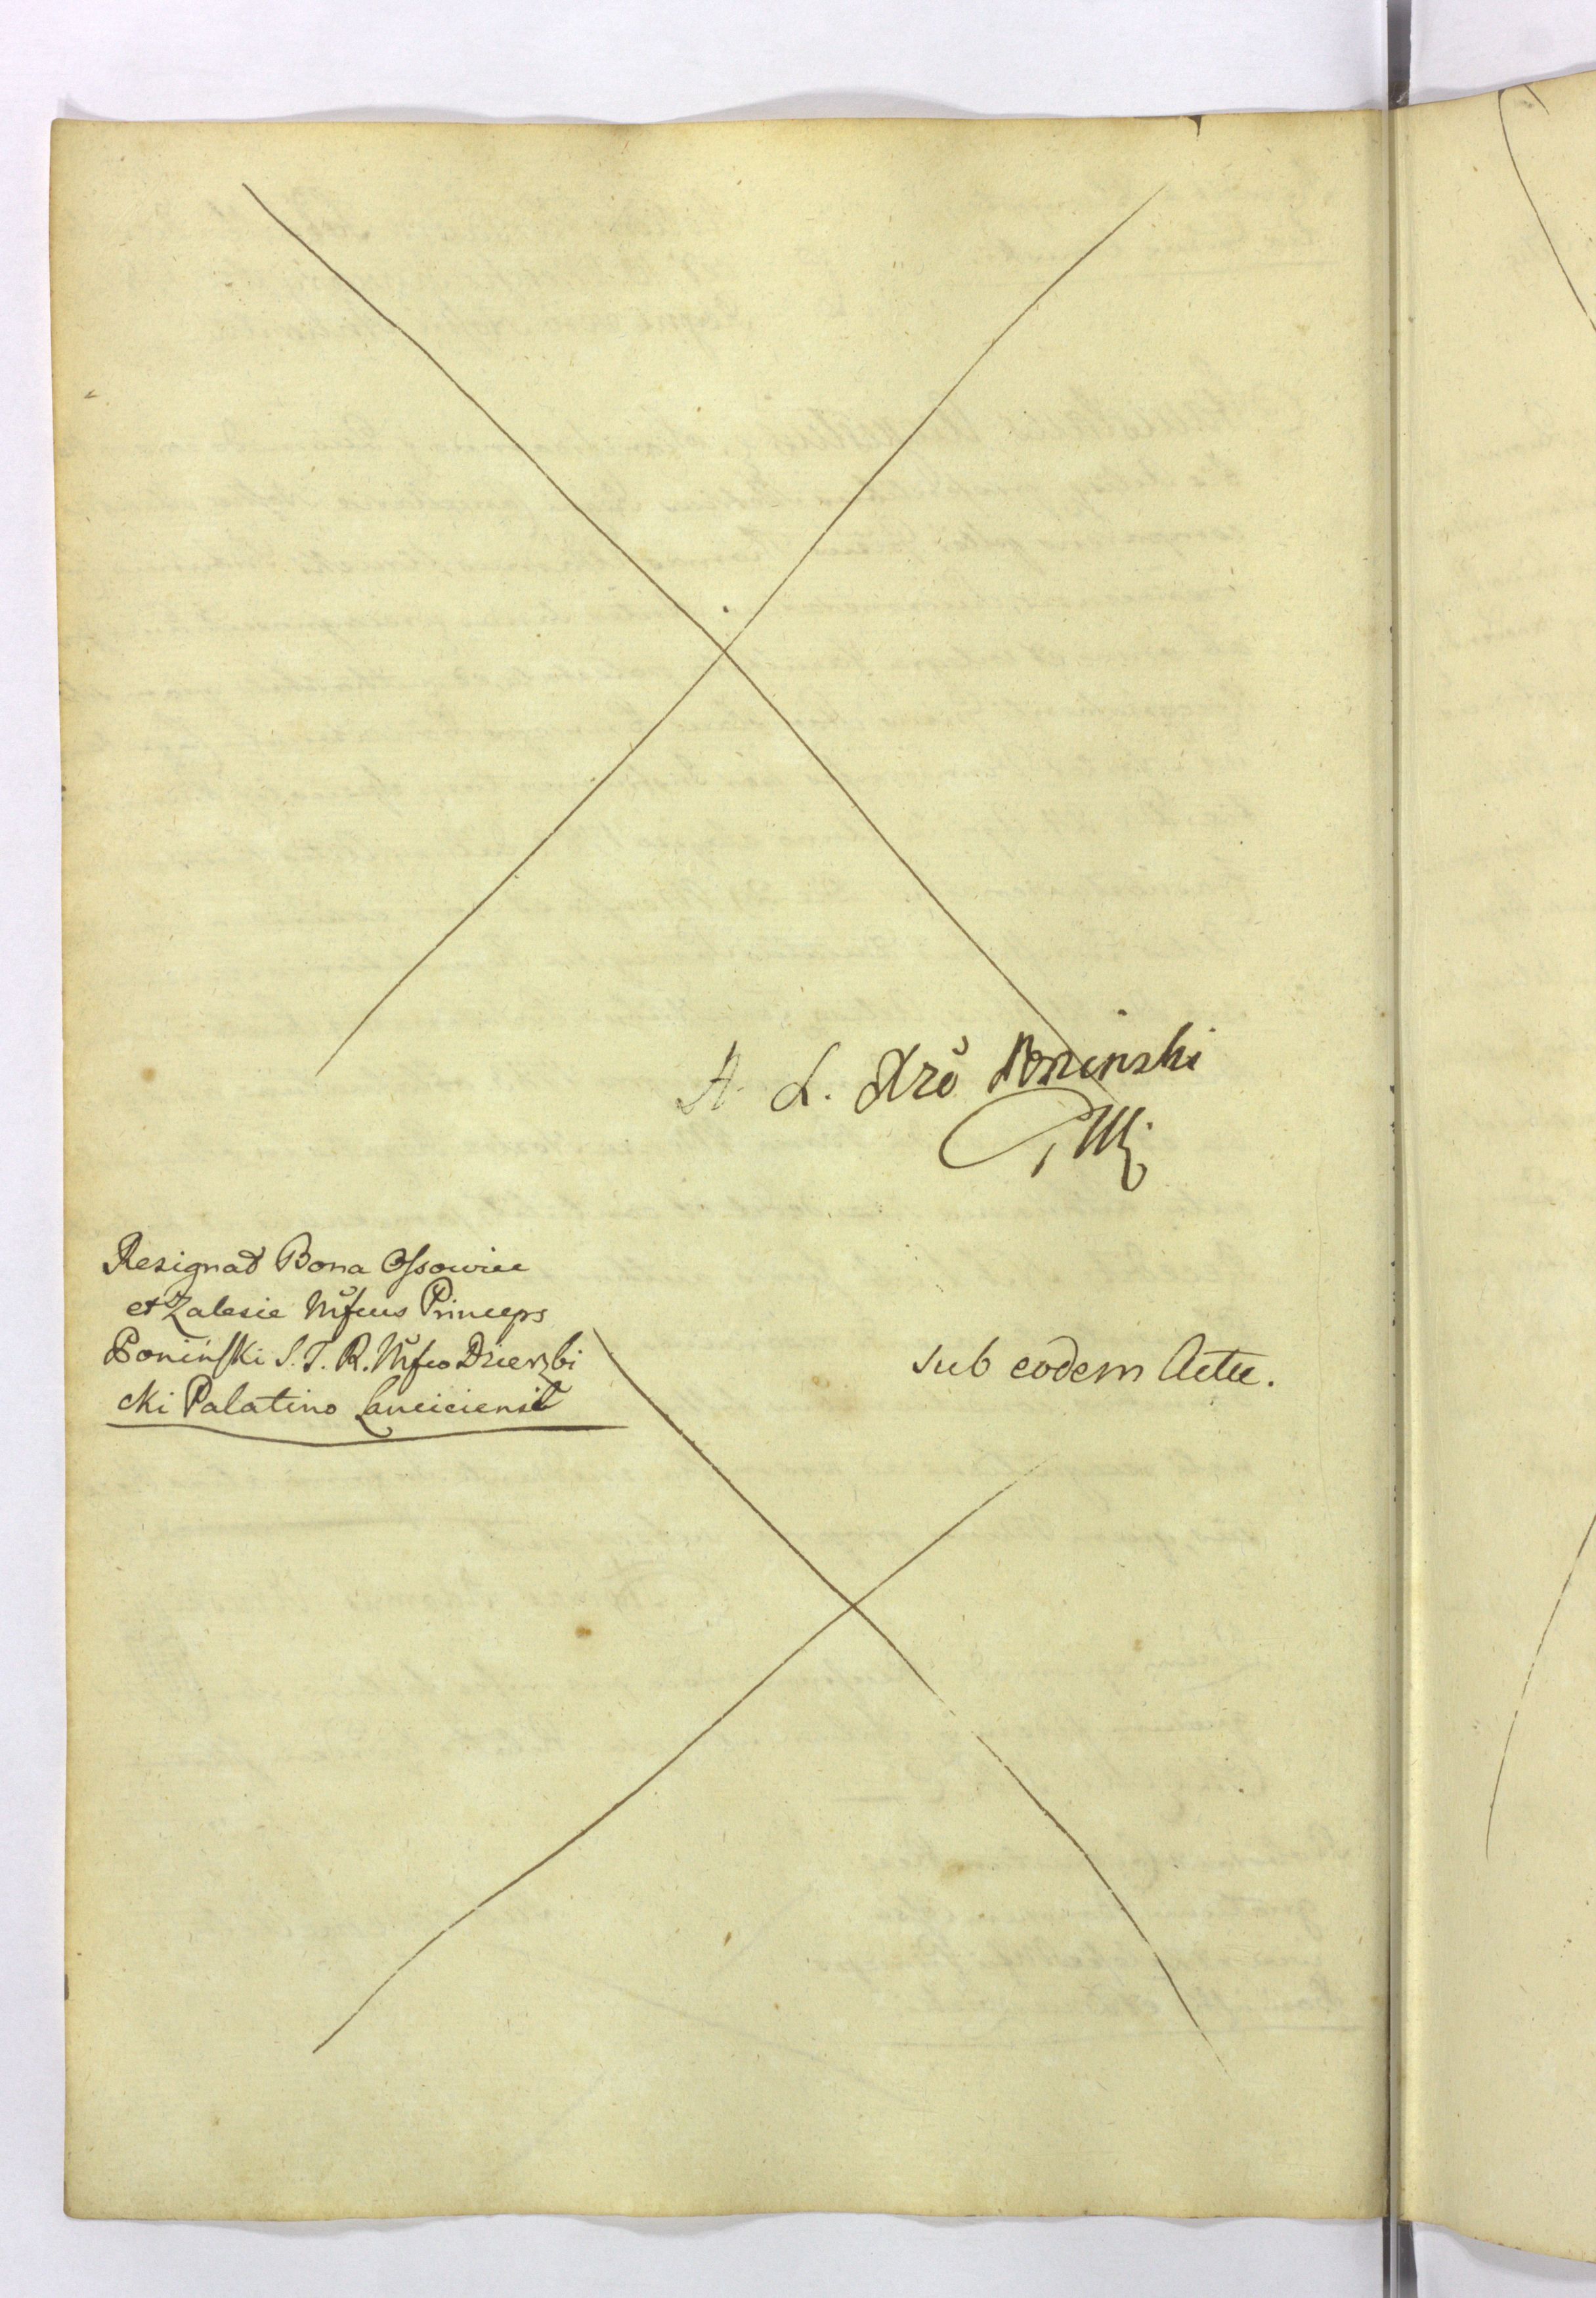 A. L. Xżě Poninski
PWK
Resignat Bona Ossowice
et Zalesie Mfcus Princeps
Poninski S. T. R. Mfco Dzierzbi
cki Palatino Lanciciensi
sub eodem Actu.